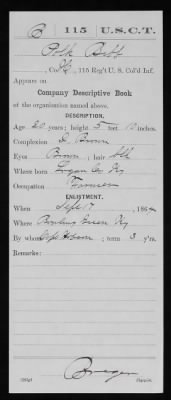 B | 115 | U.S.C.T.
Polk Bibb
, Co. , 115 Reg't U. S. Col'd Inf.
Appears on
Company Descriptive Book
of the organization named above.
DESCRIPTION.
Age 20 years; height 5 feet inches.
Complexion D. Brown
Eyes Brown ; hair Blk
Where born Logan Co Ky
Occupation Farmer
ENLISTMENT.
When Sept 17 , 1864
Where Bowling Green Ky
By whom Capt Hobson ; term 3 y'rs.
Remarks:
Copyist.